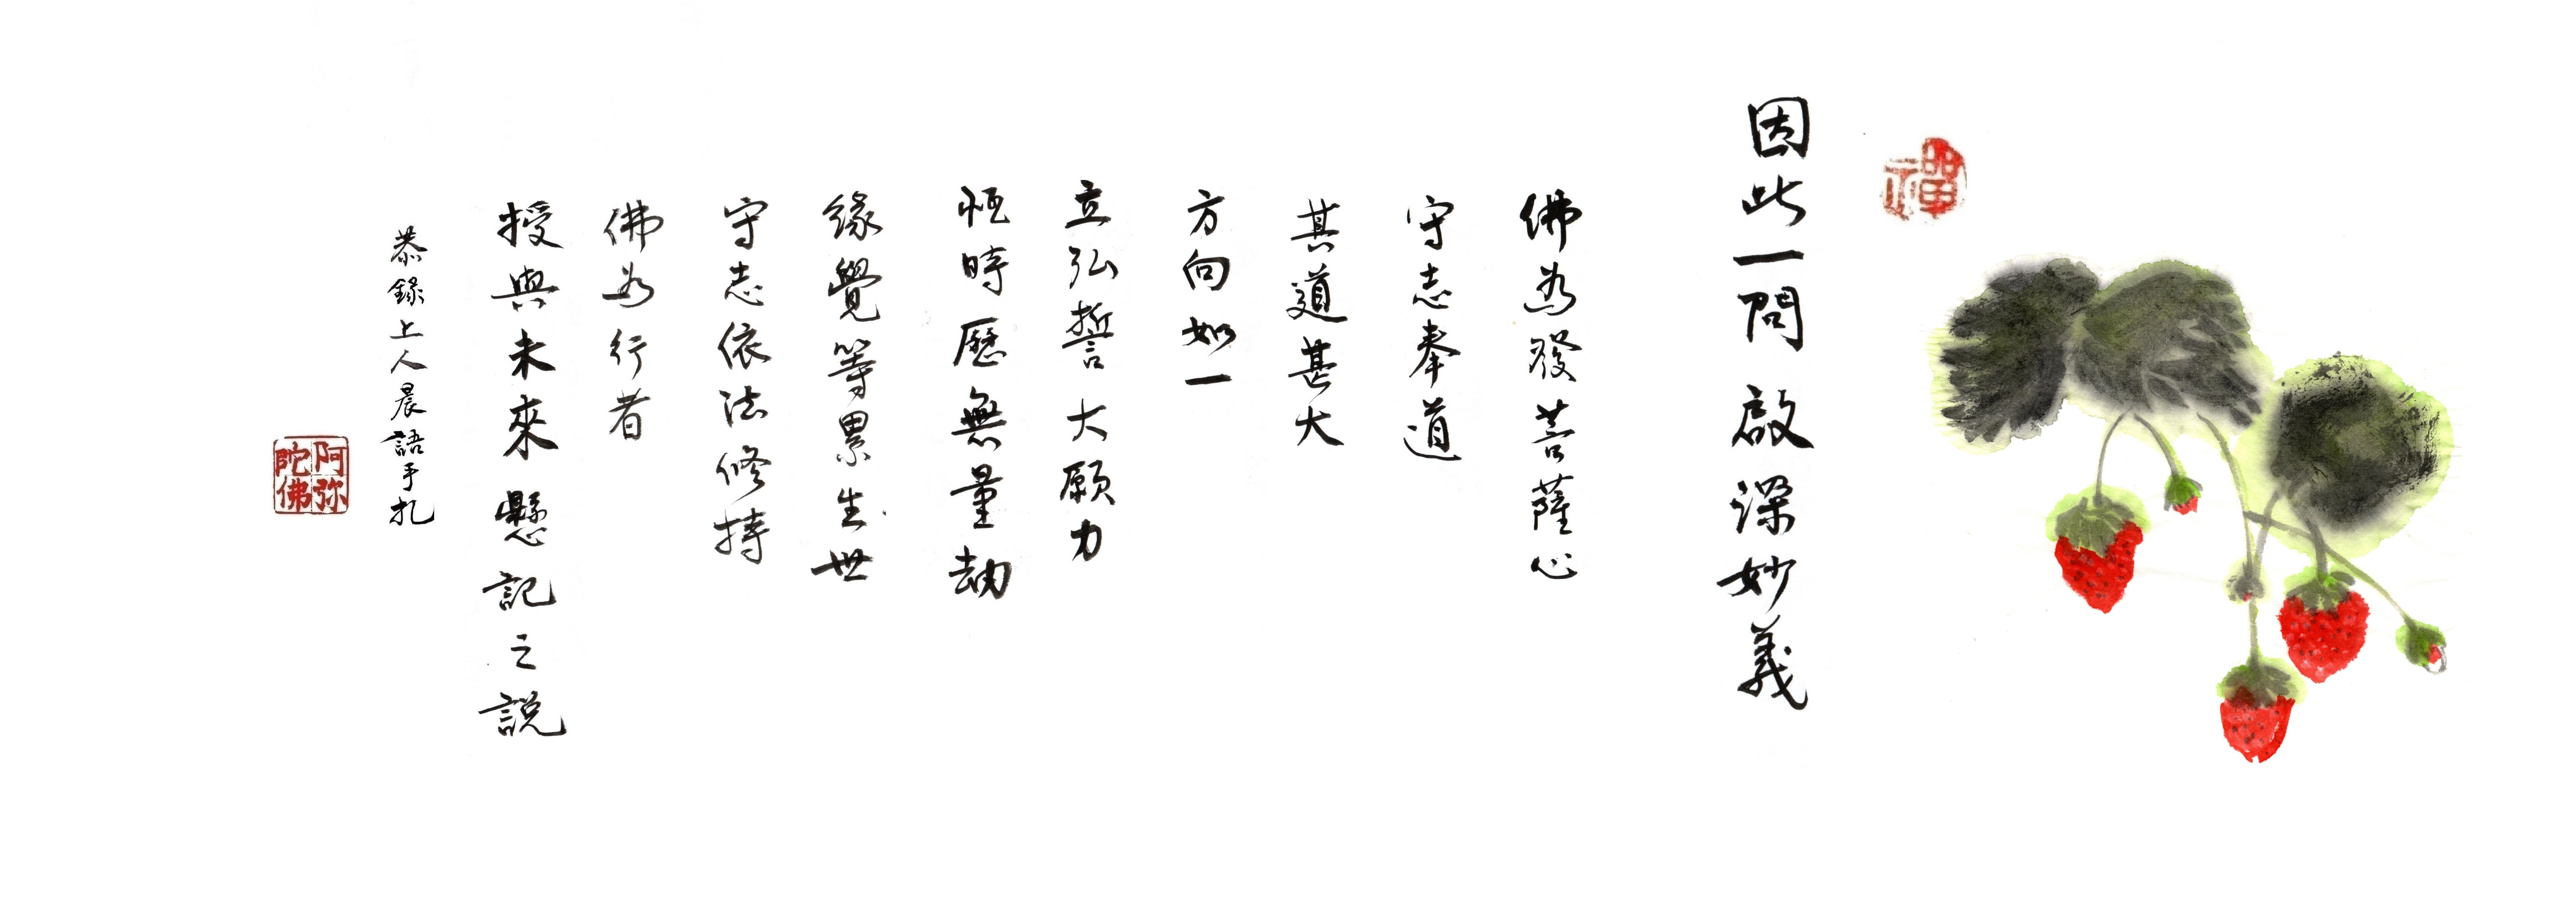 禪
因此一問 啟深妙義
佛為發菩薩心
守志奉道
其道甚大
方向如一
立弘誓大願力
恆時歷無量劫
緣覺等累生世
守志依法修持
佛為行者
授與未來懸記之説
恭錄上人晨語手札
阿弥陀佛